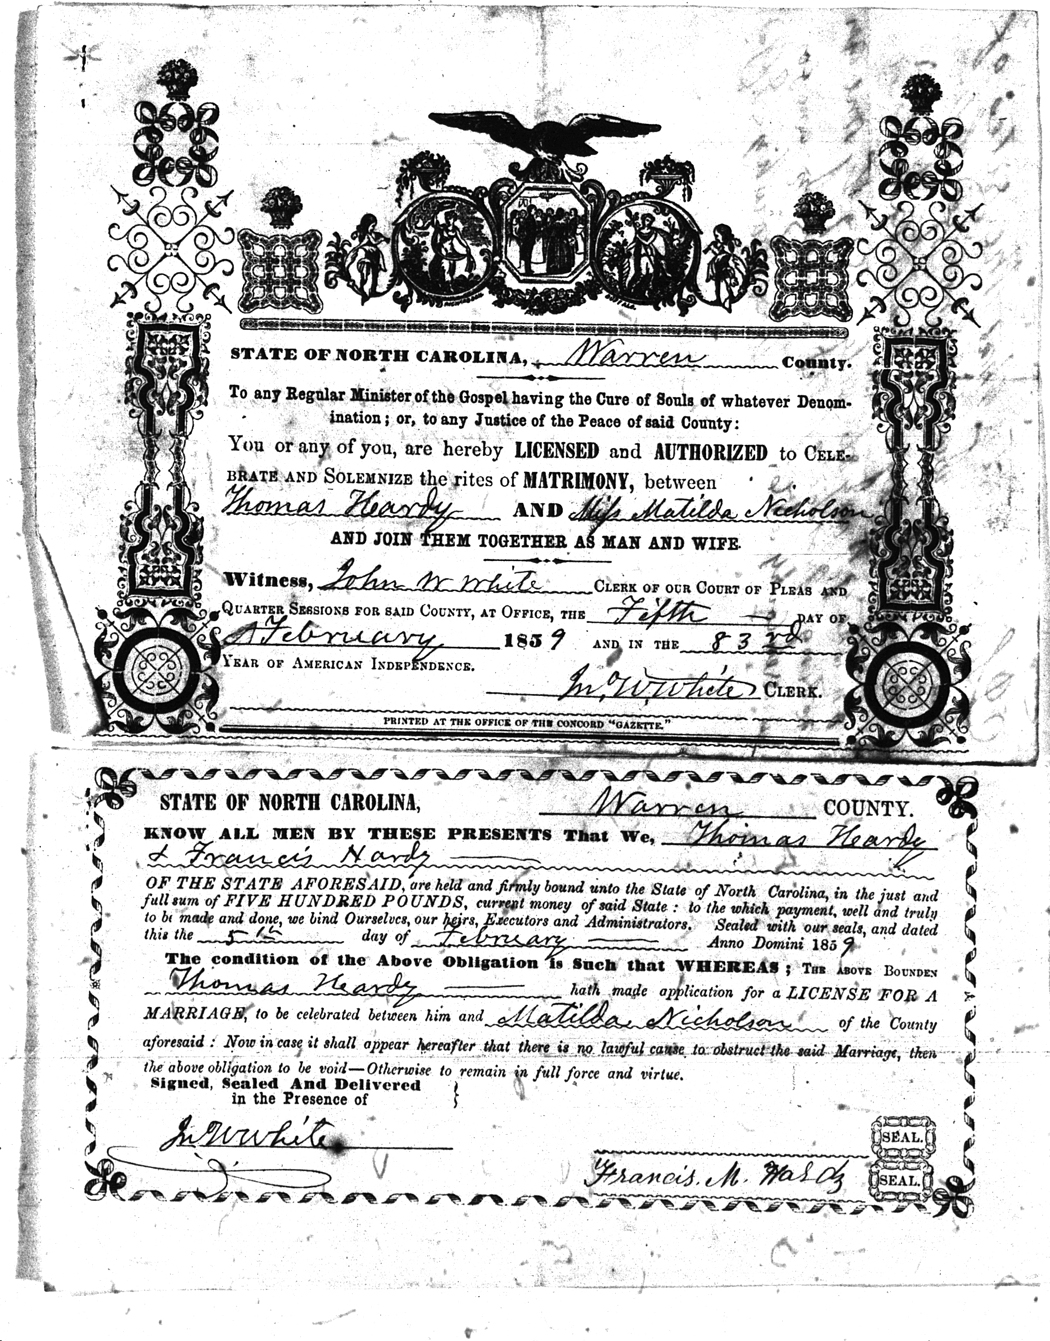 STATE OF NORTH CAROLINA, Warren County.
To any Regular Minister of the Gospel having the Cure of Souls of whatever Denom-
ination; or, to any Justice of the Peace of said County:
You or any of you, are hereby LICENSED and AUTHORIZED to CELE-
BRATE AND SOLEMNIZE the rites of MATRIMONY, between
Thomas Heardy AND Miss Matilda Nicholson
AND JOIN THEM TOGETHER AS MAN AND WIFE.
Witness, John W White CLERK OF OUR COURT OF PLEAS AND
QUARTER SESSIONS FOR SAID COUNTY, AT OFFICE, THE Fifth DAY OF
February 1859 AND IN THE 83rd
YEAR OF AMERICAN INDEPENDENCE.
Jn W White CLERK.
PRINTED AT THE OFFICE OF THE CONCORD "GAZETTE."
STATE OF NORTH CAROLINA, Warren COUNTY.
KNOW ALL MEN BY THESE PRESENTS That We, Thomas Heardy
& Francis Hardy
OF THE STATE AFORESAID, are held and firmly bound unto the State of North Carolina, in the just and
full sum of FIVE HUNDRED POUNDS, current money of said State: to the which payment, well and truly
to be made and done, we bind Ourselves, our heirs, Executors and Administrators. Sealed with our seals, and dated
this the 5th day of February Anno Domini 1859
The condition of the Above Obligation is Such that WHEREAS; THE ABOVE BOUNDEN
Thomas Heardy hath made application for a LICENSE FOR A
MARRIAGE, to be celebrated between him and Matilda Nicholson of the County
aforesaid: Now in case it shall appear hereafter that there is no lawful cause to obstruct the said Marriage, then
the above obligation to be void—Otherwise to remain in full force and virtue.
Signed, Sealed And Delivered
in the Presence of
Jn W White
SEAL.
Francis. M. Hardy SEAL.